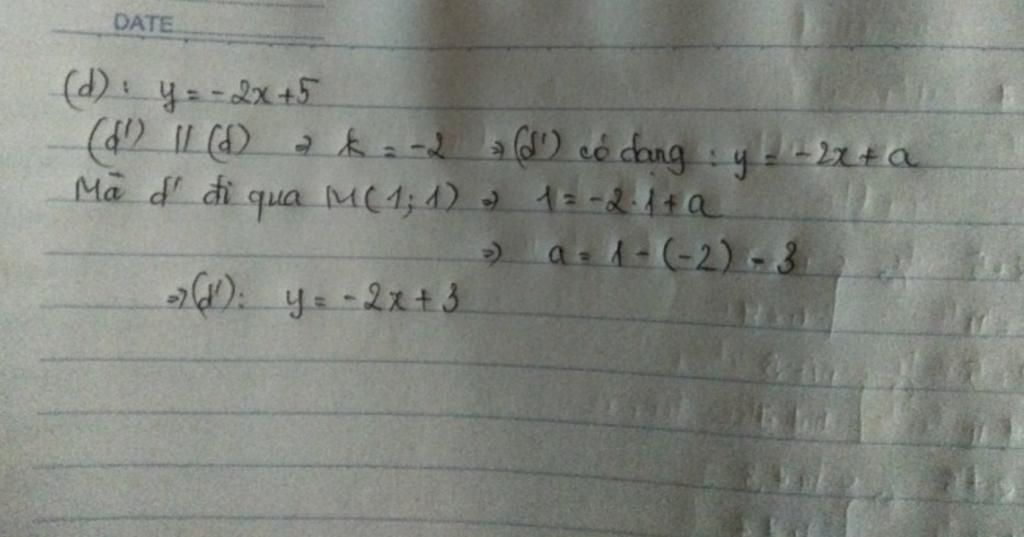 DATE
(d): y = -2x + 5
(d') // (d) => k = -2 => (d') có dạng : y = -2x + a
Mà d' đi qua M(1; 1) => 1 = -2.1 + a
=> a = 1 - (-2) = 3
=> (d'): y = -2x + 3